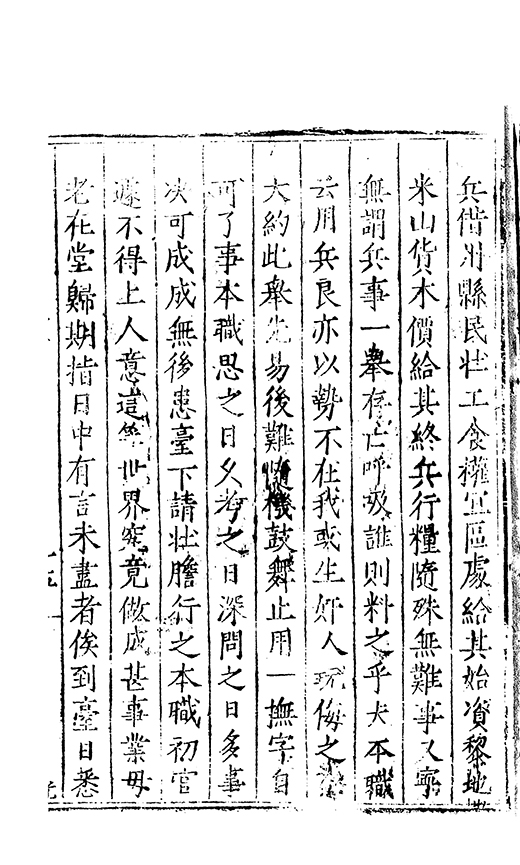 兵借州縣民壯工食權宜區處給其始資黎地
米山貨木價給其終兵行糧隨殊無難事又寧
無謂兵事一舉存亡呼吸誰則料之乎夫本職
云用兵良亦以勢不在我或生奸人玩侮之
大約此舉先易後難隨機鼓舞止用一撫字自
可了事本職思之日久考之日深問之日多事
决可成成無後患臺下請壯膽行之本職初官
遽不得上人意這等世界究竟做成甚事業毋
老在堂歸期指日中有言未盡者俟到臺日悉